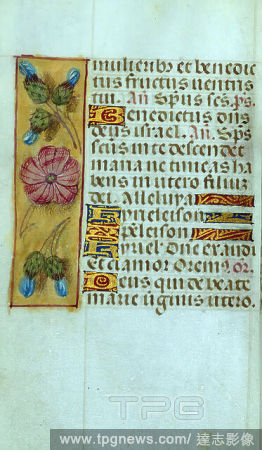 mulieribꝰ et benedic
tus fructus ventris
tui. Añ. Sp̄us sc̄s. ps.
Benedictus dn̄s
deus israel. Añ. Sp̄s
sc̄us in te descendet
maria ne timeas ha
bens in utero filiuz
dei. Alleluya
Kyrieleison
xpeleison
kyriel' Dn̄e exaudi
et clamor Orem9. or.
Deus qui de beate
marie virginis utero.
TPG
www.tpgnews.com / 達志影像